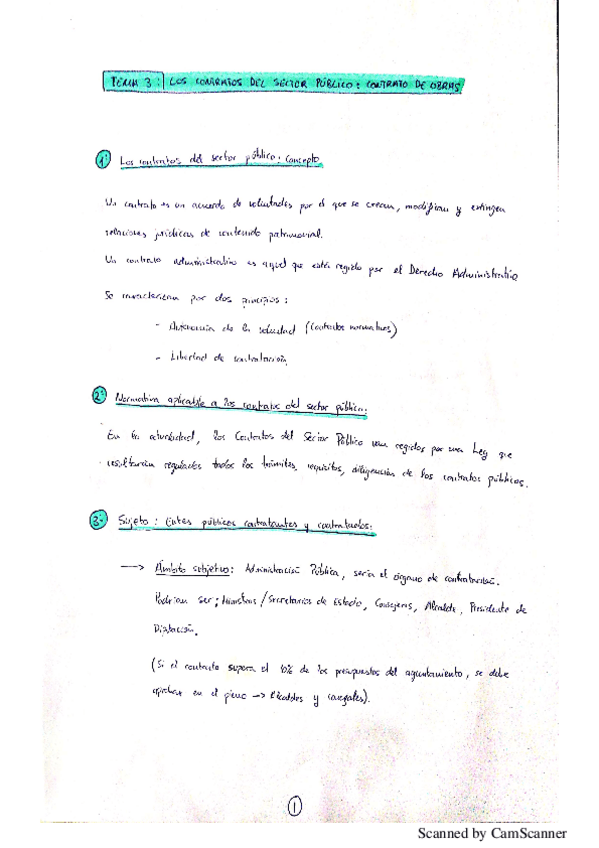 TEMA 3: LOS CONTRATOS DEL SECTOR PÚBLICO: CONTRATO DE OBRAS
1. Los contratos del sector público: Concepto.
Un contrato es un acuerdo de voluntades por el que se crean, modifican y extinguen
relaciones jurídicas de contenido patrimonial.
Un contrato administrativo es aquel que está regido por el Derecho Administrativo
Se caracterizan por dos principios:
- Autonomía de la voluntad (Contratos normativos)
- Libertad de contratación.
2. Normativa aplicable a los contratos del sector público.
En la actualidad, los Contratos del Sector Público van regidos por una Ley que
resultarían regulados todos los trámites, requisitos, diligencias de los contratos públicos.
3. Sujeto: Entes públicos contratantes y contratados.
→ Ámbito subjetivo: Administración Pública, sería el órgano de contratación.
Podrían ser: Ministros/Secretarios de Estado, Consejeros, Alcalde, Presidente de
Diputación.
(Si el contrato supera el 10% de los presupuestos del ayuntamiento, se debe
aprobar en el pleno → Alcaldes y concejales).
1
Scanned by CamScanner